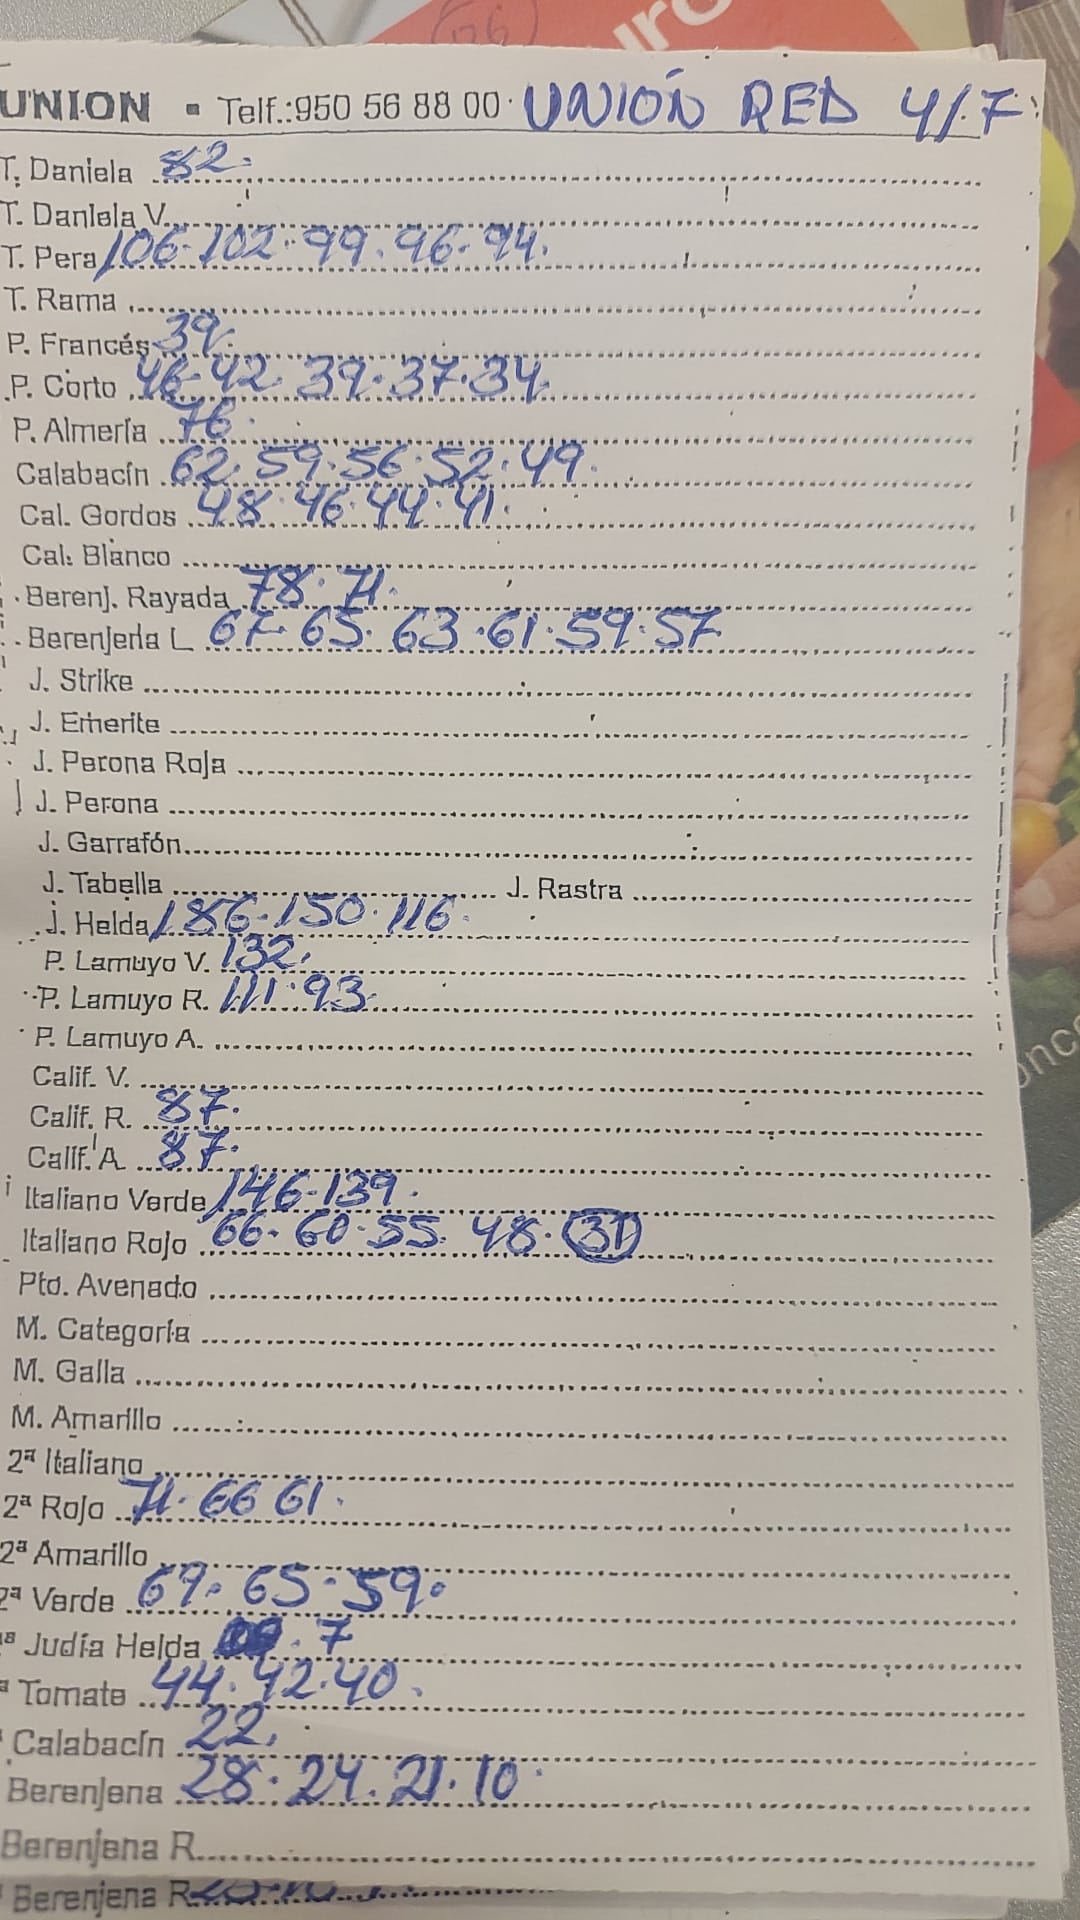 UNION • Telf.:950 56 88 00 UNIÓN RED 4/7
T. Daniela 82.
T. Daniela V.
T. Pera 106. 102. 99. 96. 94.
T. Rama
P. Francés 39.
P. Corto 46. 42. 39. 37. 34.
P. Almería 76.
Calabacín 62. 59. 56. 52. 49.
Cal. Gordos 48. 46. 44. 41.
Cal. Blanco
Berenj. Rayada 78. 71.
Berenjena L 67. 65. 63. 61. 59. 57
J. Strike
J. Emerite
J. Perona Roja
J. Perona
J. Garrafón
J. Tabella J. Rastra
J. Helda 186. 150. 116.
P. Lamuyo V. 132.
P. Lamuyo R. 111. 93.
P. Lamuyo A.
Calif. V.
Calif. R. 87.
Calif. A 87.
Italiano Verde 146. 139.
Italiano Rojo 66. 60. 55. 48. 31
Pto. Avenado
M. Categoría
M. Galia
M. Amarillo
2ª Italiano
2ª Rojo 71. 66 61.
2ª Amarillo
2ª Verde 69. 65. 59.
ª Judía Helda . 7
ª Tomate 44. 42. 40.
Calabacín 22.
Berenjena 28. 24. 21. 10.
Berenjena R
Berenjena R